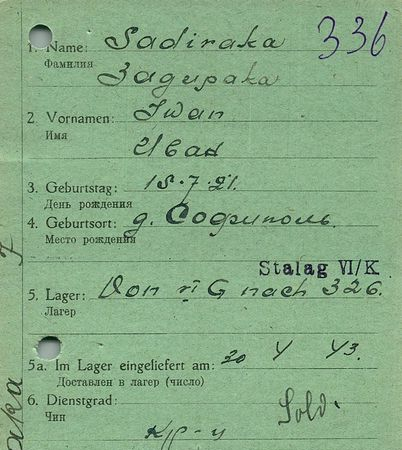 336
1. Name: Sadiraka
Фамилия Задирака
2. Vornamen: Iwan
Имя
Иван
3. Geburtstag: 18.7.21.
День рождения
4. Geburtsort: д. Софиполь.
Место рождения
Stalag VI/K
5. Lager: Von VI G nach 326.
Лагерь
5a. Im Lager eingeliefert am: 20 43.
Доставлен в лагерь (число)
6. Dienstgrad: Sold.
Чин
кр-ц